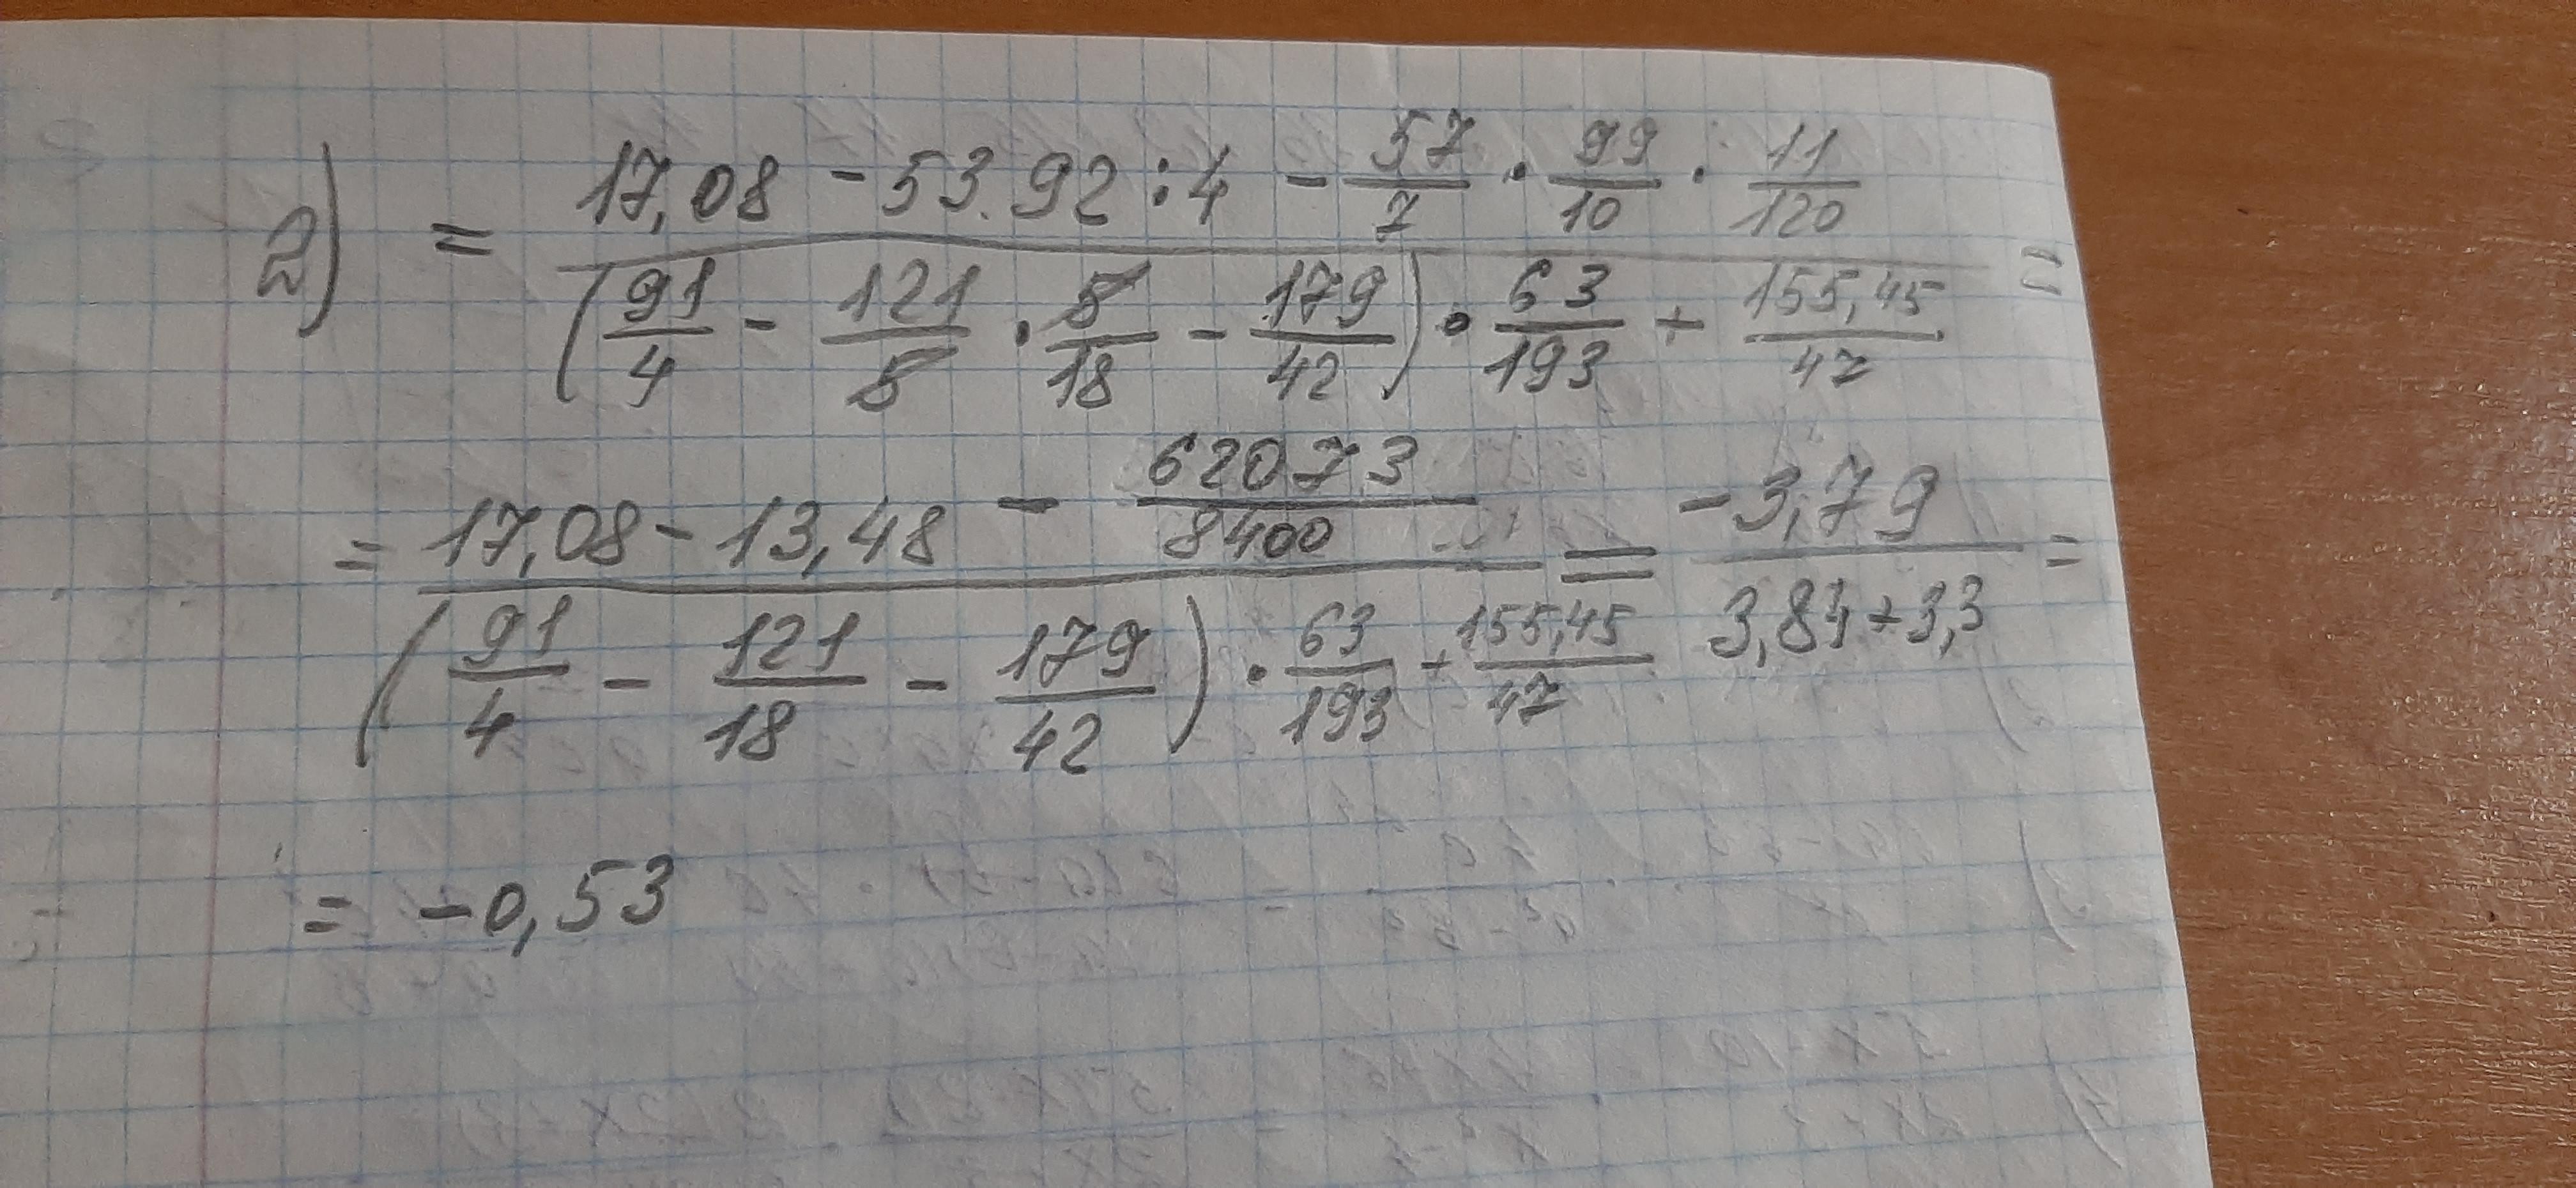 2) = (17,08 - 53.92 : 4 - 57/7 · 99/10 · 11/120) / ((91/4 - 121/5 · 5/18 - 179/42) · 63/193 + 155,45/47) =
= (17,08 - 13,48 - 62073/8400) / ((91/4 - 121/18 - 179/42) · 63/193 + 155,45/47) = -3,79 / (3,84 + 3,3) =
= -0,53